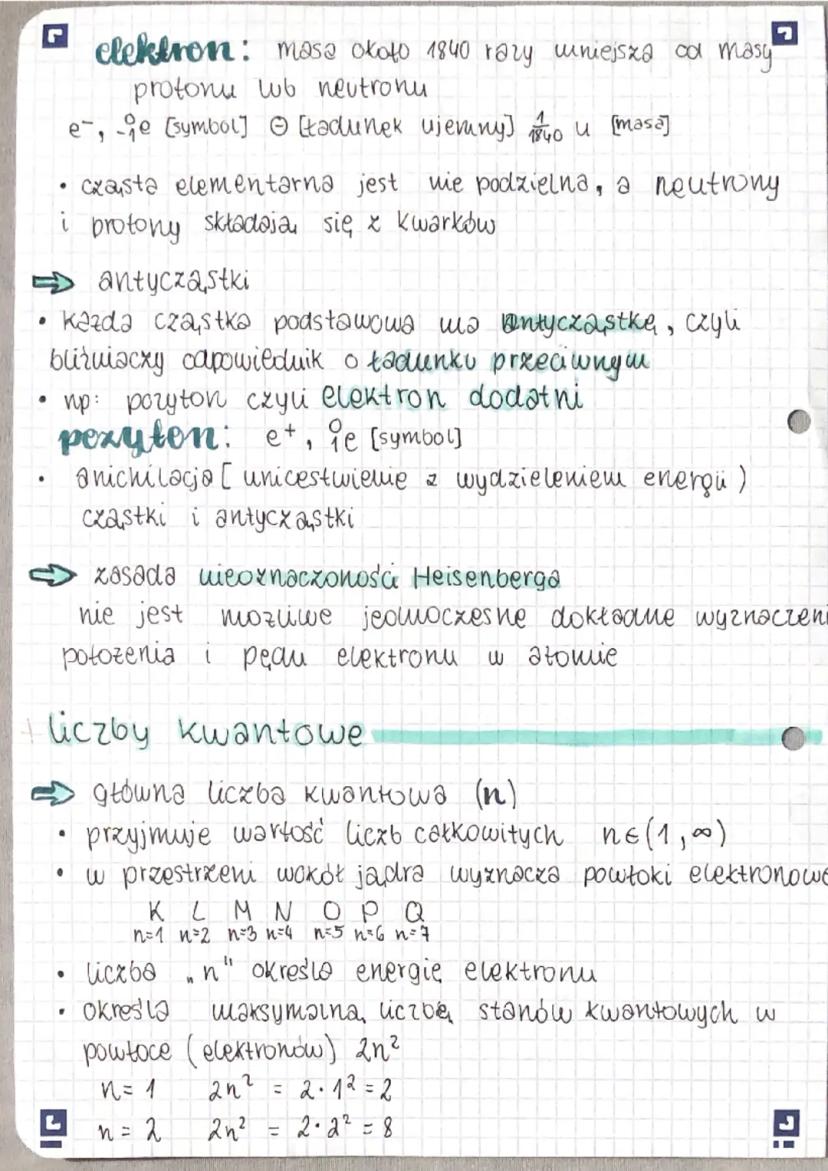 elektron: masa około 1840 razy mniejsza od masy
protonu lub neutronu
e⁻, ₋₁⁰e [symbol] ⊖ [ładunek ujemny] 1/1840 u [masa]
• cząsta elementarna jest nie podzielna, a neutrony
i protony składają się z kwarków
⇒ antycząstki
• każda cząstka podstawowa ma antycząstkę, czyli
bliźniaczy odpowiednik o ładunku przeciwnym
• np: pozyton czyli elektron dodatni
pozyton: e⁺, ₁⁰e [symbol]
• anichilacja [unicestwienie z wydzieleniem energii)
cząstki i antycząstki
⇒ zasada nieoznaczoności Heisenberga
nie jest możliwe jednoczesne dokładne wyznaczeni
położenia i pędu elektronu w atomie
liczby kwantowe
⇒ główna liczba kwantowa (n)
• przyjmuje wartość liczb całkowitych n∈(1,∞)
• w przestrzeni wokół jądra wyznacza powłoki elektronowe
K L M N O P Q
n=1 n=2 n=3 n=4 n=5 n=6 n=7
• liczba „n" określa energię elektronu
• określa maksymalną liczbę stanów kwantowych w
powłoce (elektronów) 2n²
n=1 2n² = 2·1² = 2
n=2 2n² = 2·2² = 8